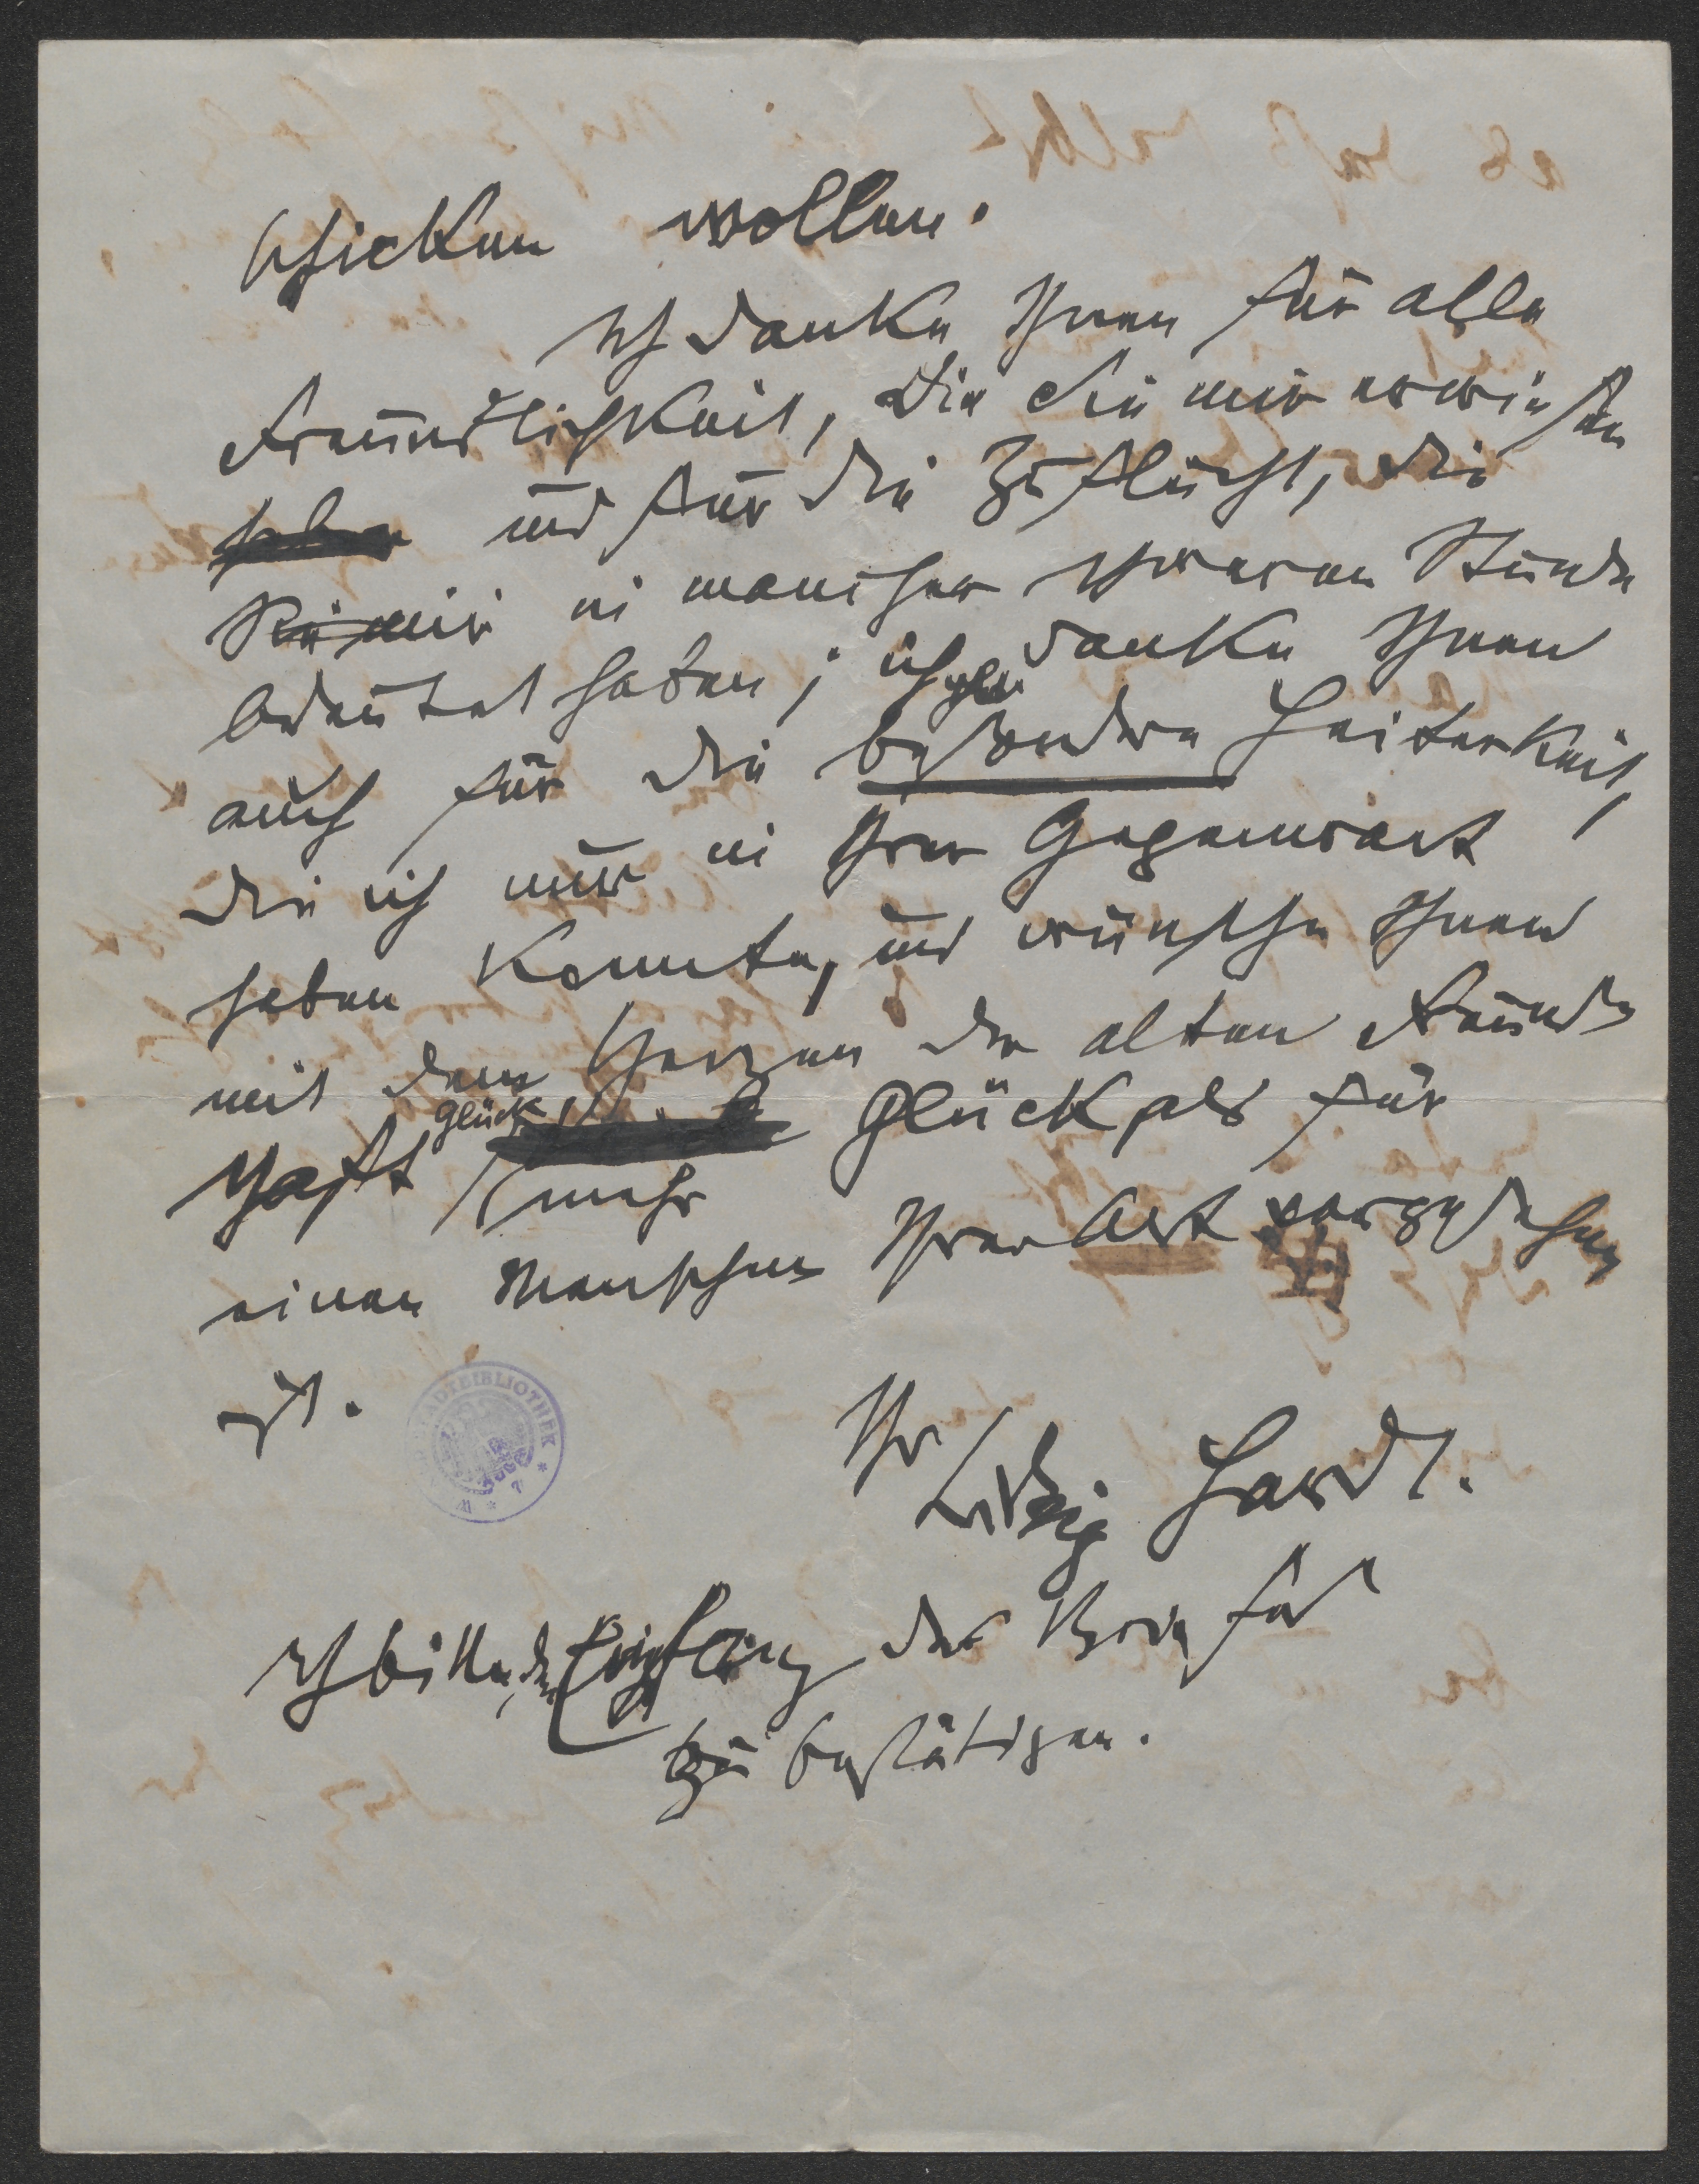 schicken wollen.
Ich danke Ihnen für alle
Freundlichkeit, die Sie mir erwiesen
haben und für die Zuflucht, die
Sie mir in mancher schweren Stunde
bedeutet haben; ich danke Ihnen
auch für die besondere Heiterkeit,
die ich nur in Ihrer Gegenwart
haben konnte, und wünsche Ihnen
mit dem Herzen der alten Freund-
schaft Glück
mehr Glück als für
einen Menschen Ihrer Art vorgesehen
ist.
STADTBIBLIOTHEK
Ihr
Ludwig Hardt.
Ich bitte, den Empfang des Briefes
zu bestätigen.